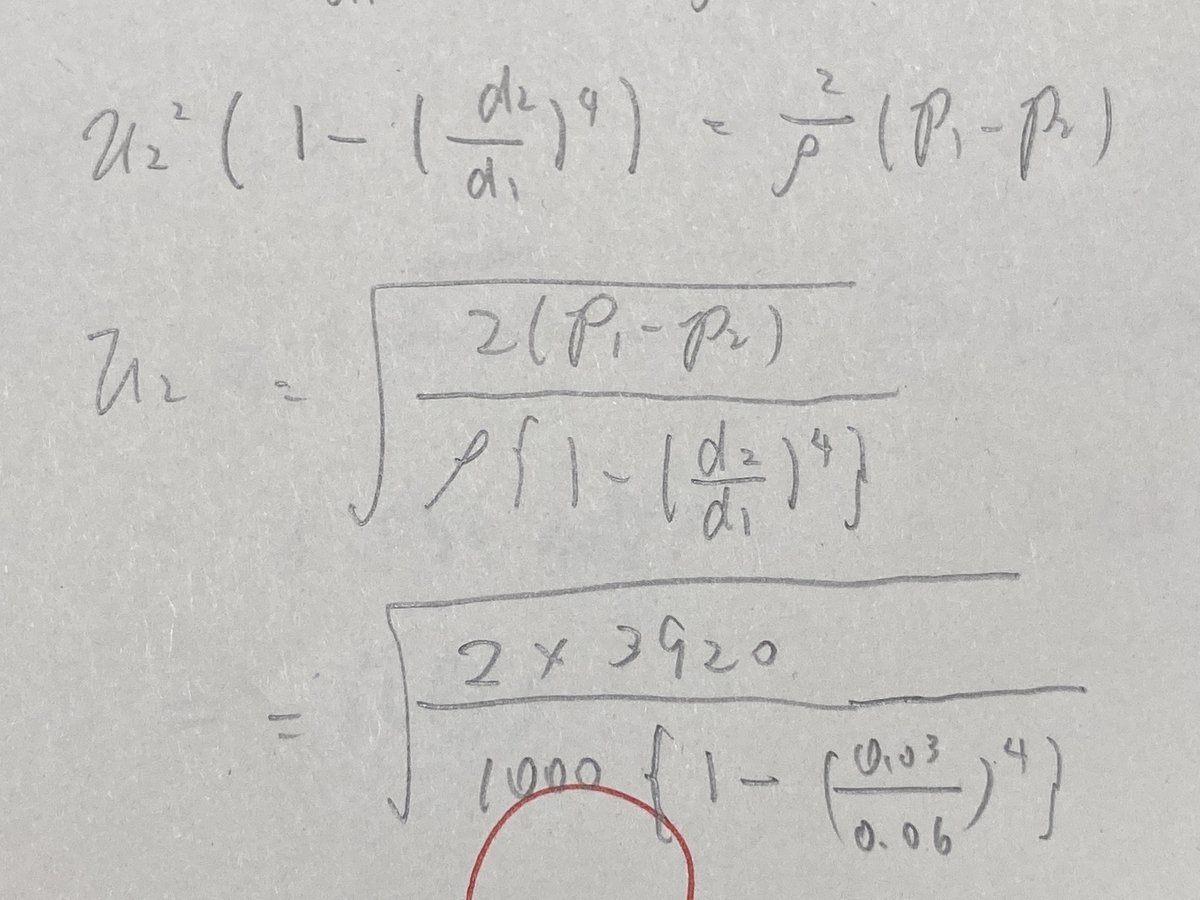 u₂² ( 1 - ( d₂/d₁ )⁴ ) = 2/ρ ( P₁ - P₂ )
u₂ = √( 2(P₁ - P₂) / ρ{ 1 - ( d₂/d₁ )⁴ } )
= √( 2 × 3920 / 1000 { 1 - ( 0.03/0.06 )⁴ } )